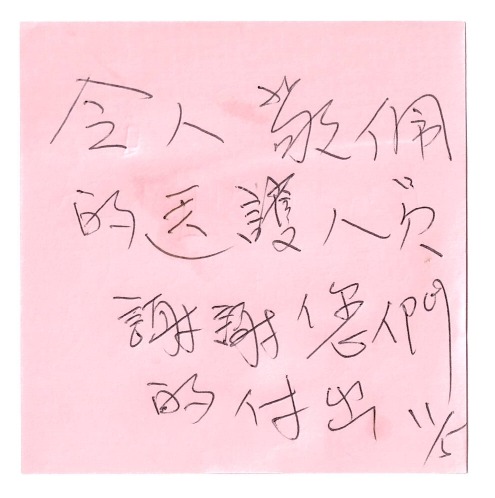 令人敬佩
的医護人员
謝謝您們
的付出 11/5